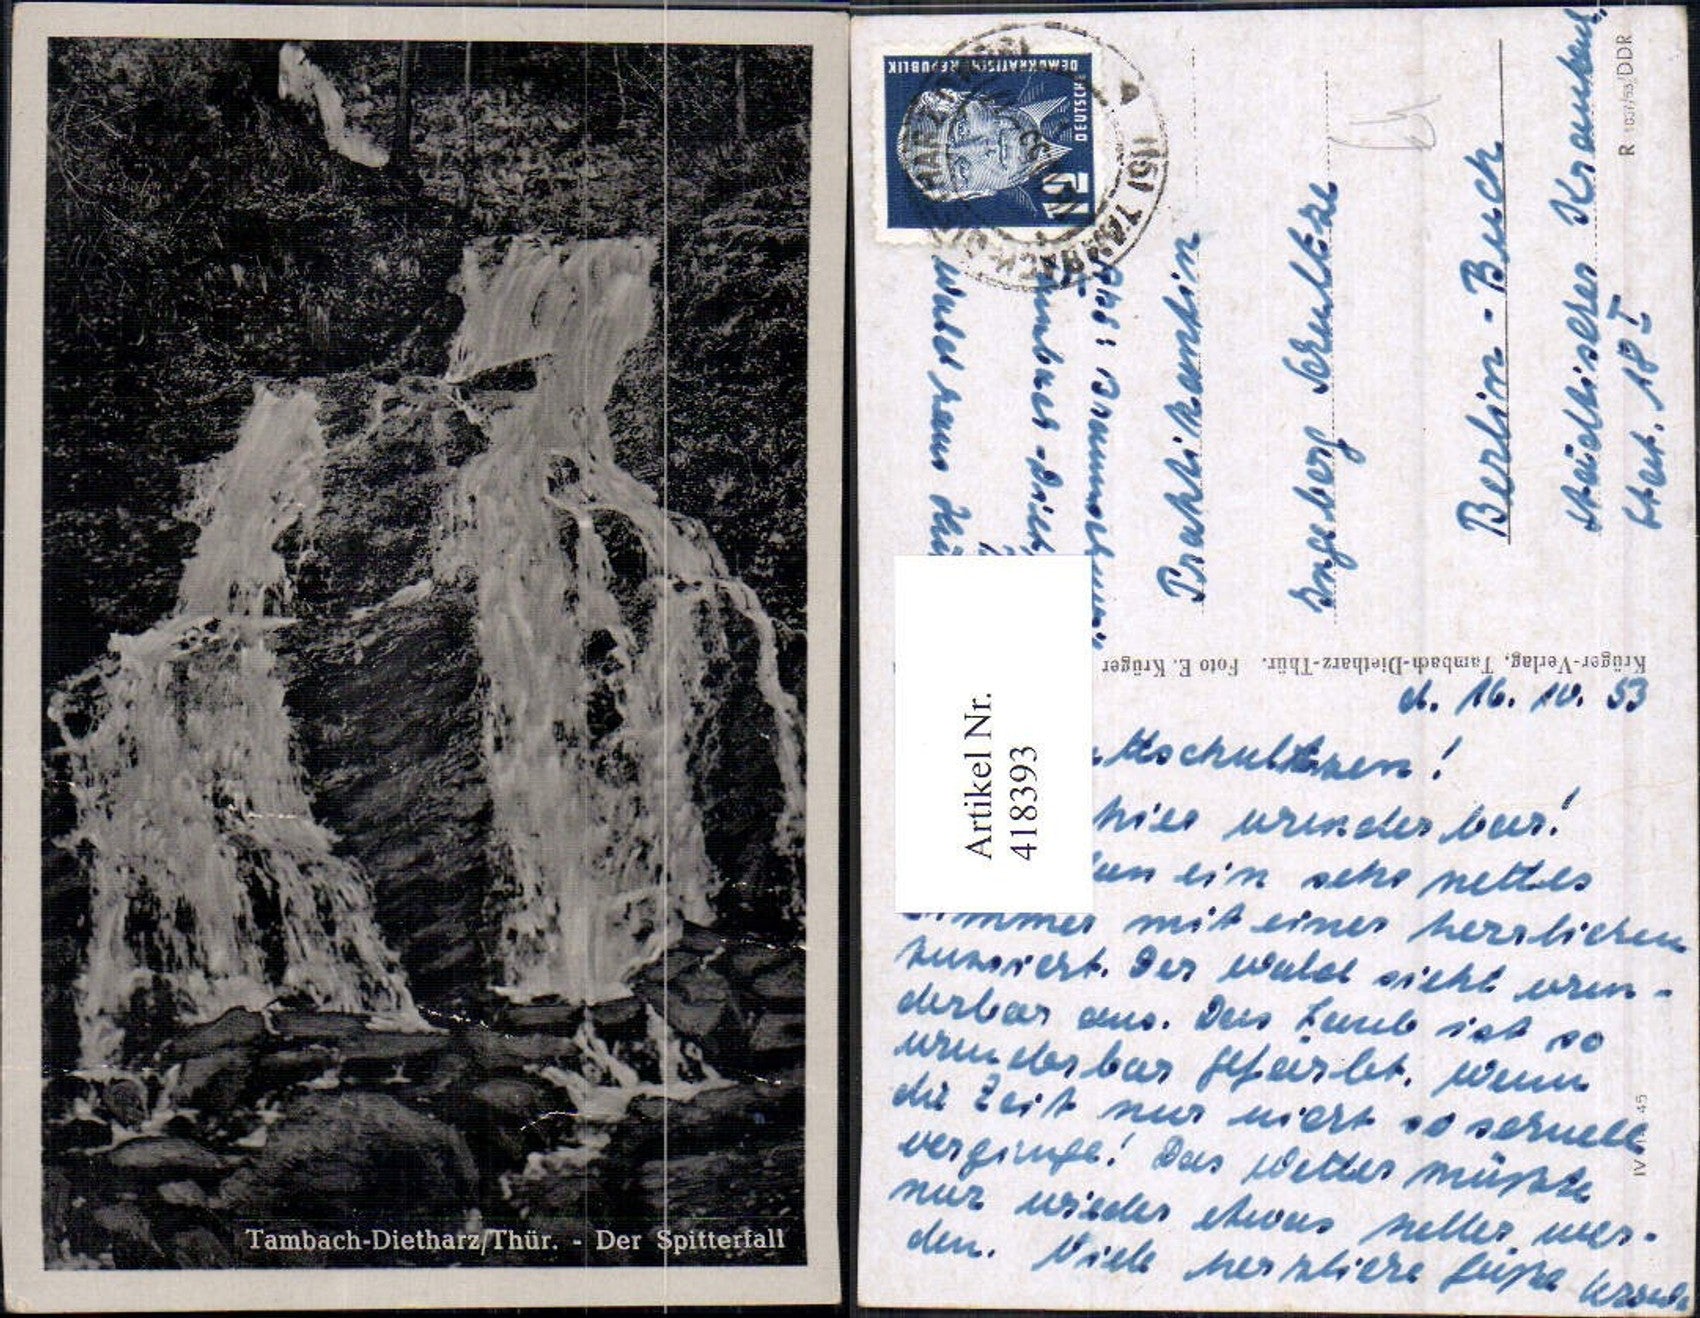 Tambach-Dietharz/Thür. - Der Spitterfall
DEUTSCHE
DEMOKRATISCHE REPUBLIK
12
(15) TAMBACH-DIETHARZ
Abs: Brammorhum
Wald haus
Praktikantin
Ingeborg Schultze
Berlin - Buch
Städtisches Krankenh.
Stat. 18 I
R 1037/53/DDR
Krüger-Verlag, Tambach-Dietharz-Thür. Foto E. Krüger
Artikel Nr.
418393
d. 16. 10. 53
ttschultzen!
hier wunderbar!
ein sehr nettes
Zimmer mit einer herrlichen
Aussicht. Der Wald sieht wun-
derbar aus. Das Laub ist so
wunderbar gefärbt. Wenn
die Zeit nur nicht so schnell
verginge! Das Wetter müßte
nur wieder etwas heller wer-
den. Viele herzliche Grüße
IV 45